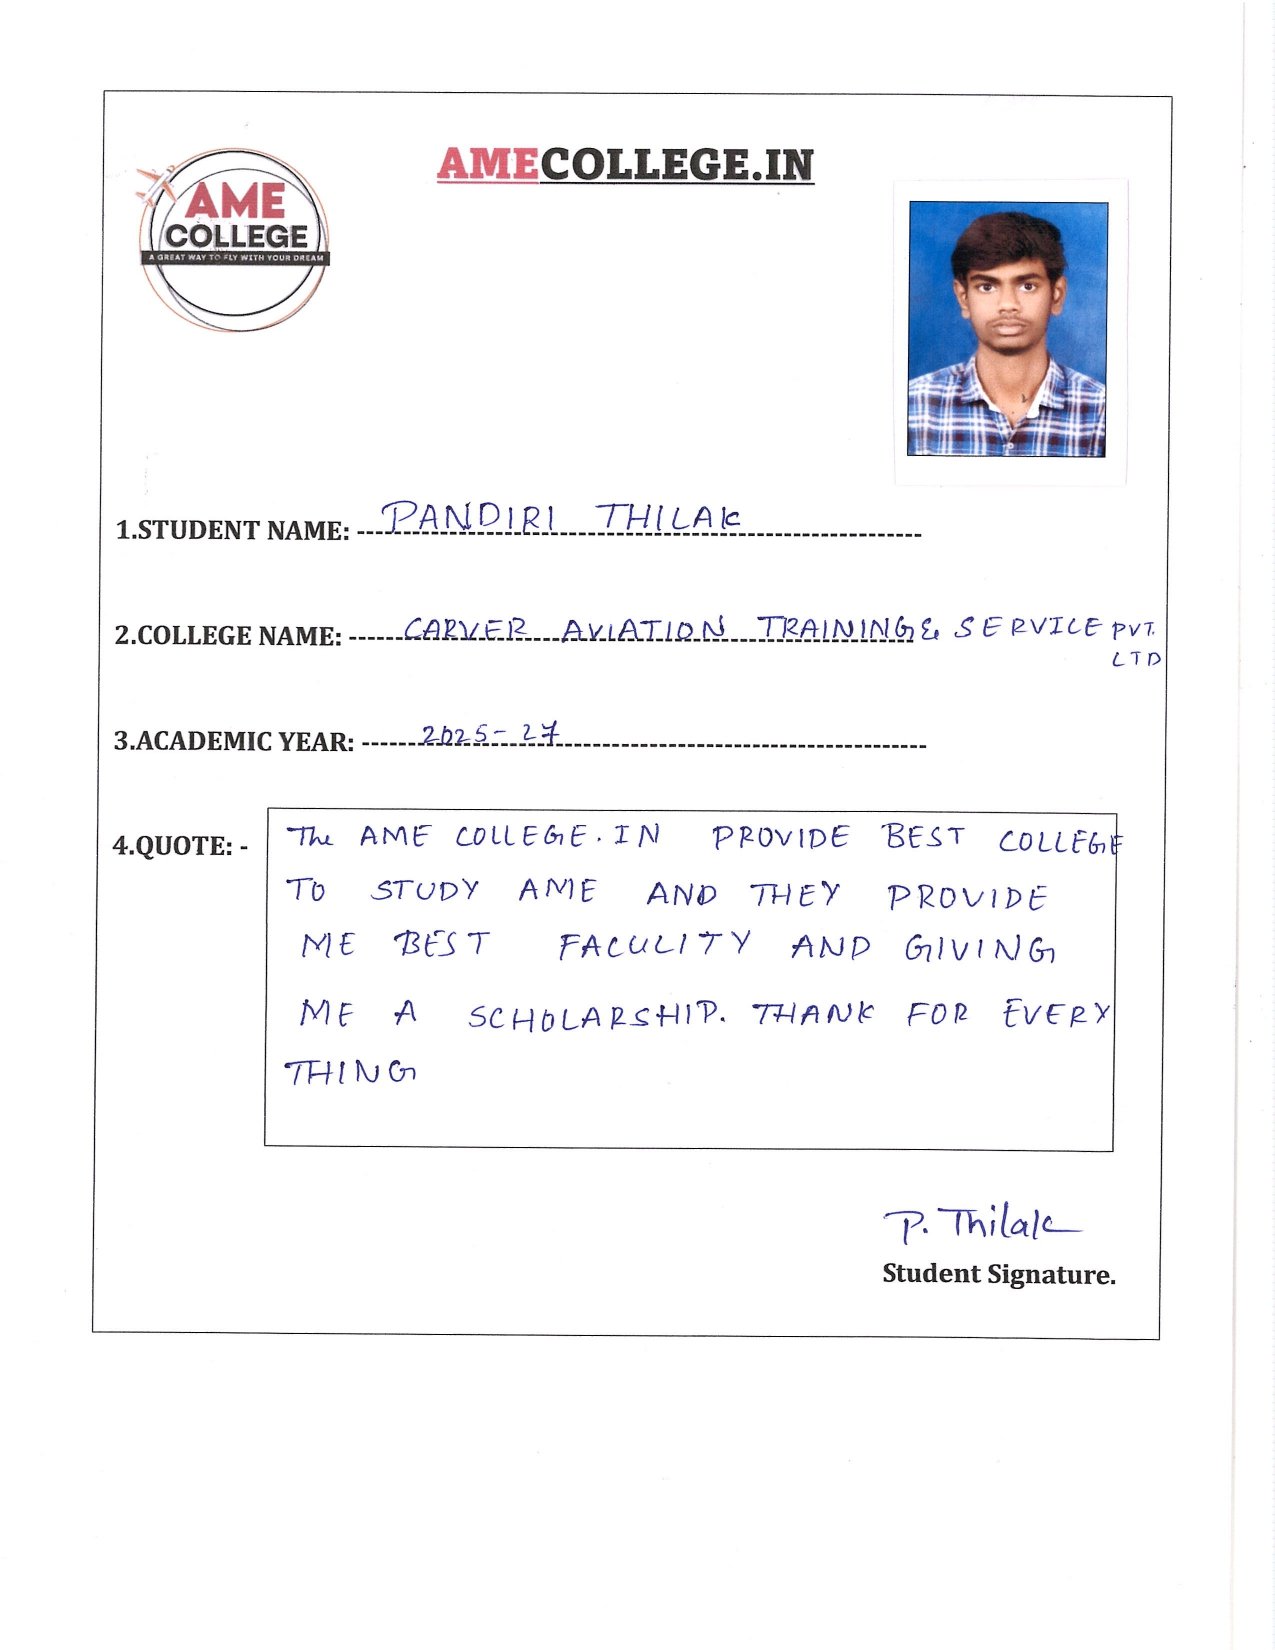 AMECOLLEGE.IN
AME
COLLEGE
A GREAT WAY TO FLY WITH YOUR DREAM
1.STUDENT NAME: PANDIRI THILAK
2.COLLEGE NAME: CARVER AVIATION TRAINING & SERVICE PVT.
LTD
3.ACADEMIC YEAR: 2025-27
4.QUOTE: -
The AME COLLEGE.IN PROVIDE BEST COLLEGE
TO STUDY AME AND THEY PROVIDE
ME BEST FACULITY AND GIVING
ME A SCHOLARSHIP. THANK FOR EVERY
THING
P. Thilak
Student Signature.